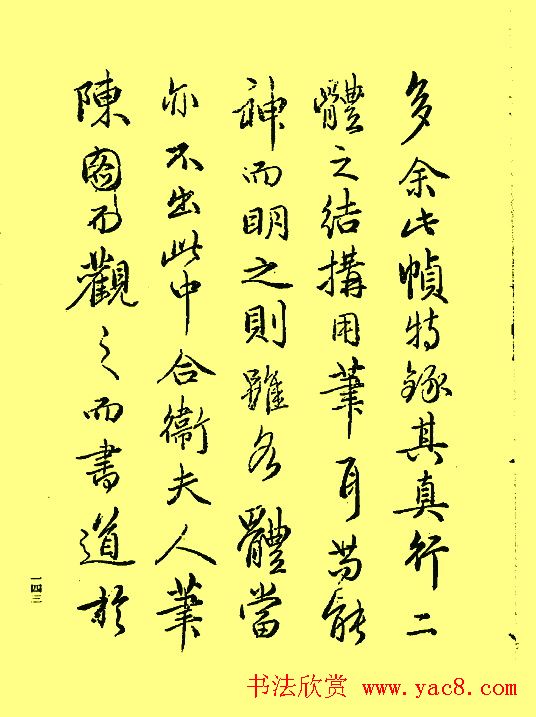 多余此幀特錄其真行二
體之結搆用筆耳苟能
神而明之則雖各體當
亦不出此中合衛夫人筆
陳圖而觀之而書道於
一四三
书法欣赏 www.yac8.com